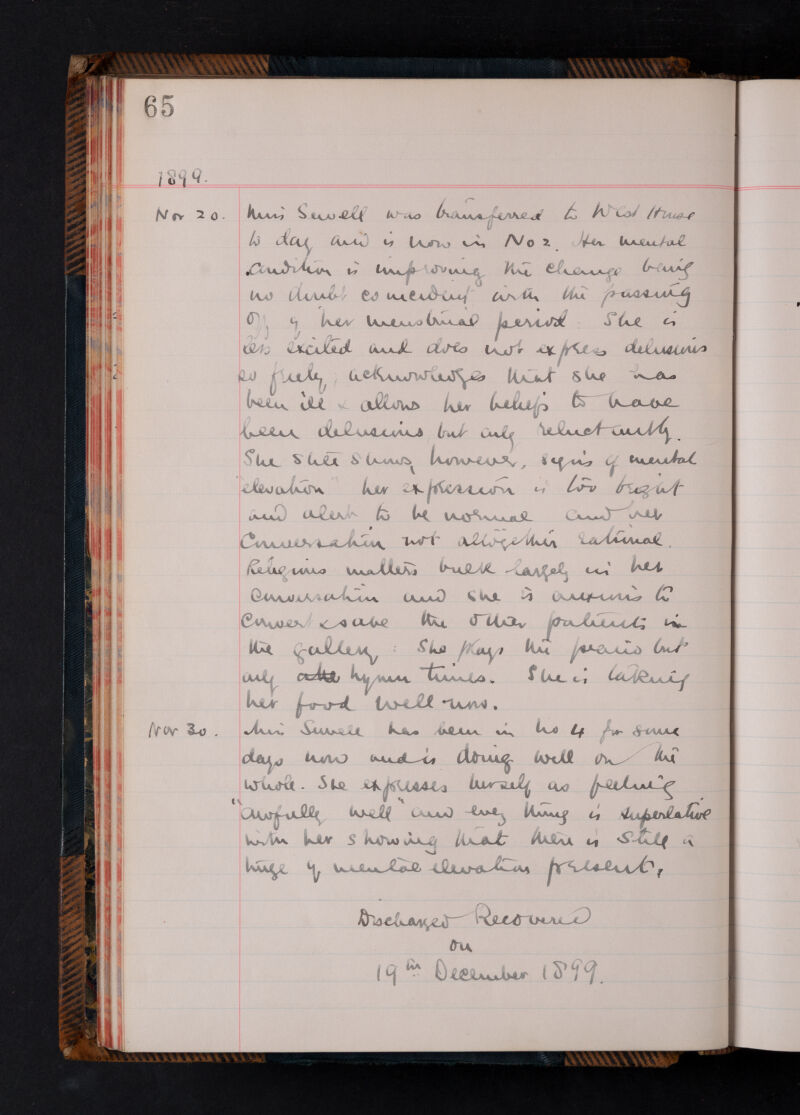 65
1899.
Nov 20. Miss Sewell was transferred to West House
to day and is now in No 2. Her mental
condition is improving the change being
no doubt coincident with the passing
off of her menstrual period. She is
less excited and does not express delusions
so freely, acknowledges that she has
been ill & allows her beliefs to have
been delusions but only reluctantly.
She still shows, however, signs of mental
"elevation" her expression is too bright
and alert to be normal and her
conversation not altogether rational.
Religious matters bulk largely in her
conversation and she is anxious to
convert & save the other patients in
the gallery: She plays the piano but
only hymn tunes. She is taking
her food well now.
Nov 30. Miss Sewell has been in No 4 for some
days now and is doing well on the
whole. She expresses herself as feeling
"awfully well" and every thing is superlative
with her showing that there is still a
tinge of mental elevation present.
Discharged Recovered
on
19th December 1899.